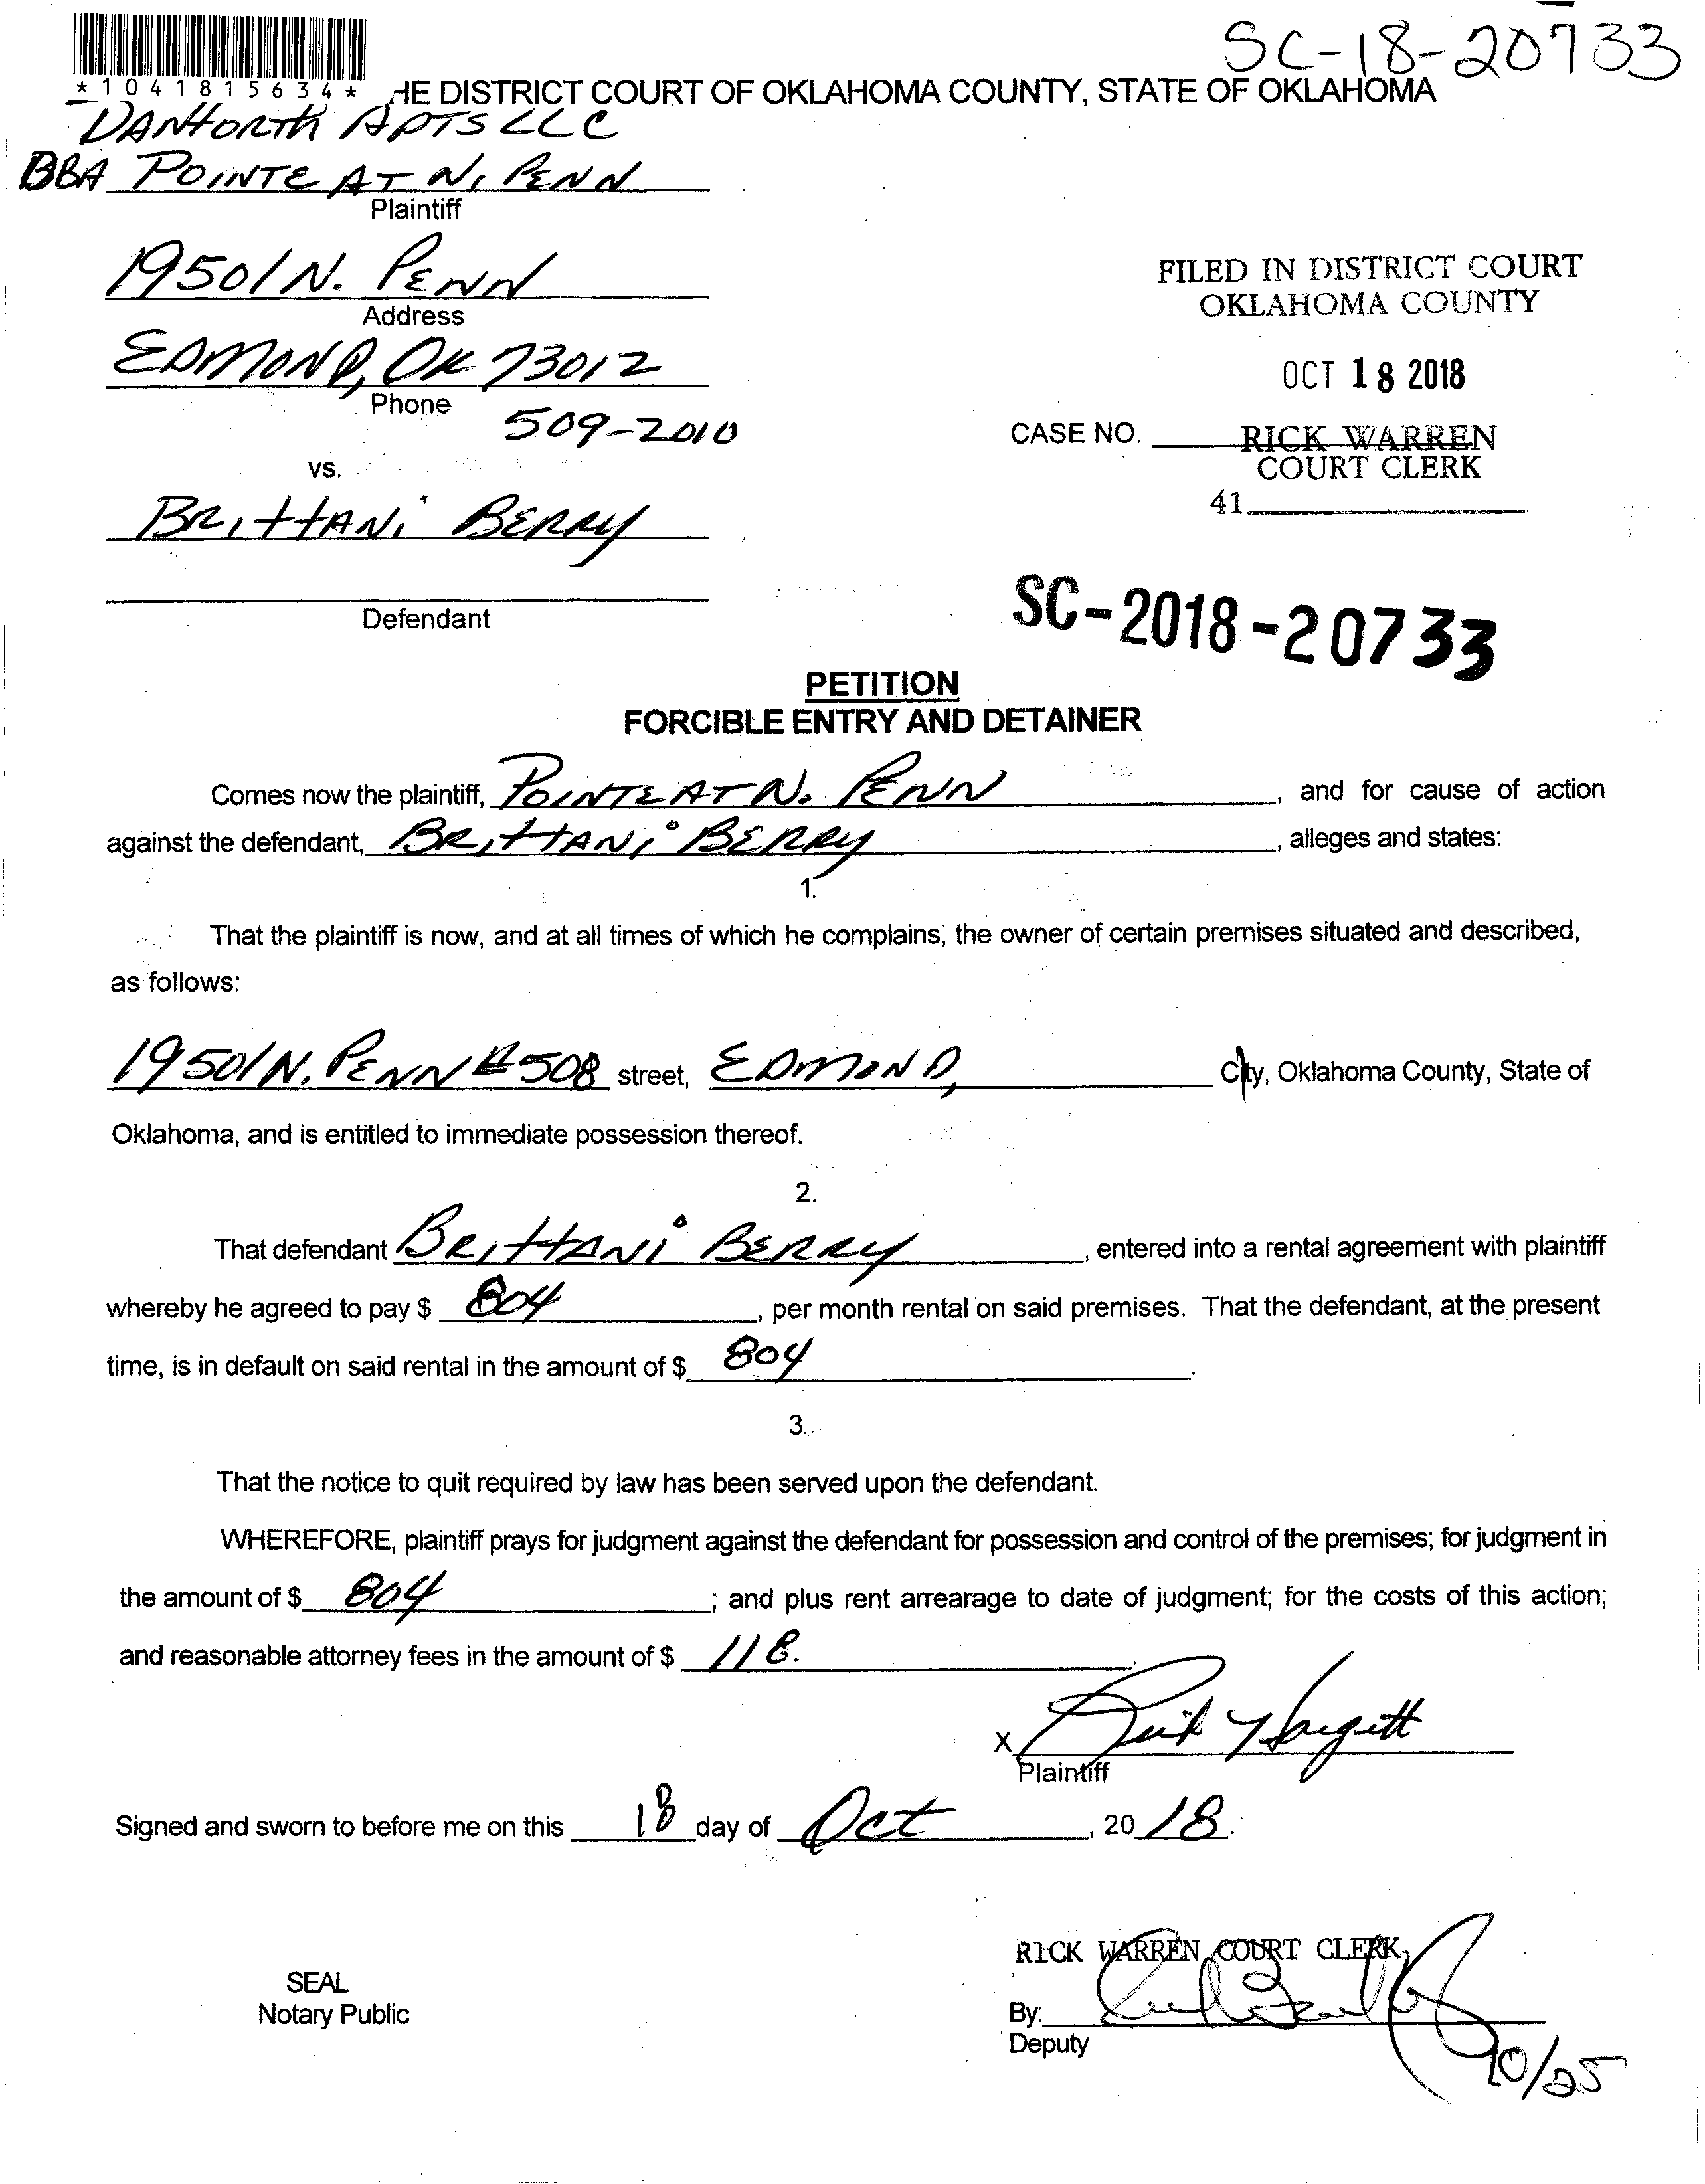 SC-18-20733
*1041815634* HE DISTRICT COURT OF OKLAHOMA COUNTY, STATE OF OKLAHOMA
DANFORTH APTS LLC
DBA POINTE AT N. PENN
Plaintiff
19501 N. PENN
Address
FILED IN DISTRICT COURT
OKLAHOMA COUNTY
EDMOND, OK 73012
OCT 18 2018
Phone 509-2010
CASE NO. RICK WARREN
COURT CLERK
vs.
41
BRITTANI BERRY
Defendant
SC-2018-20733
PETITION
FORCIBLE ENTRY AND DETAINER
Comes now the plaintiff, POINTE AT N. PENN, and for cause of action
against the defendant, BRITTANI BERRY, alleges and states:
1.
That the plaintiff is now, and at all times of which he complains, the owner of certain premises situated and described,
as follows:
19501 N. PENN #508 street, EDMOND, City, Oklahoma County, State of
Oklahoma, and is entitled to immediate possession thereof.
2.
That defendant BRITTANI BERRY, entered into a rental agreement with plaintiff
whereby he agreed to pay $ 804, per month rental on said premises. That the defendant, at the present
time, is in default on said rental in the amount of $ 804.
3.
That the notice to quit required by law has been served upon the defendant.
WHEREFORE, plaintiff prays for judgment against the defendant for possession and control of the premises; for judgment in
the amount of $ 804; and plus rent arrearage to date of judgment; for the costs of this action;
and reasonable attorney fees in the amount of $ 118.
X
Plaintiff
Signed and sworn to before me on this 18 day of Oct, 2018.
RICK WARREN, COURT CLERK
SEAL
Notary Public
By:
Deputy
10/25